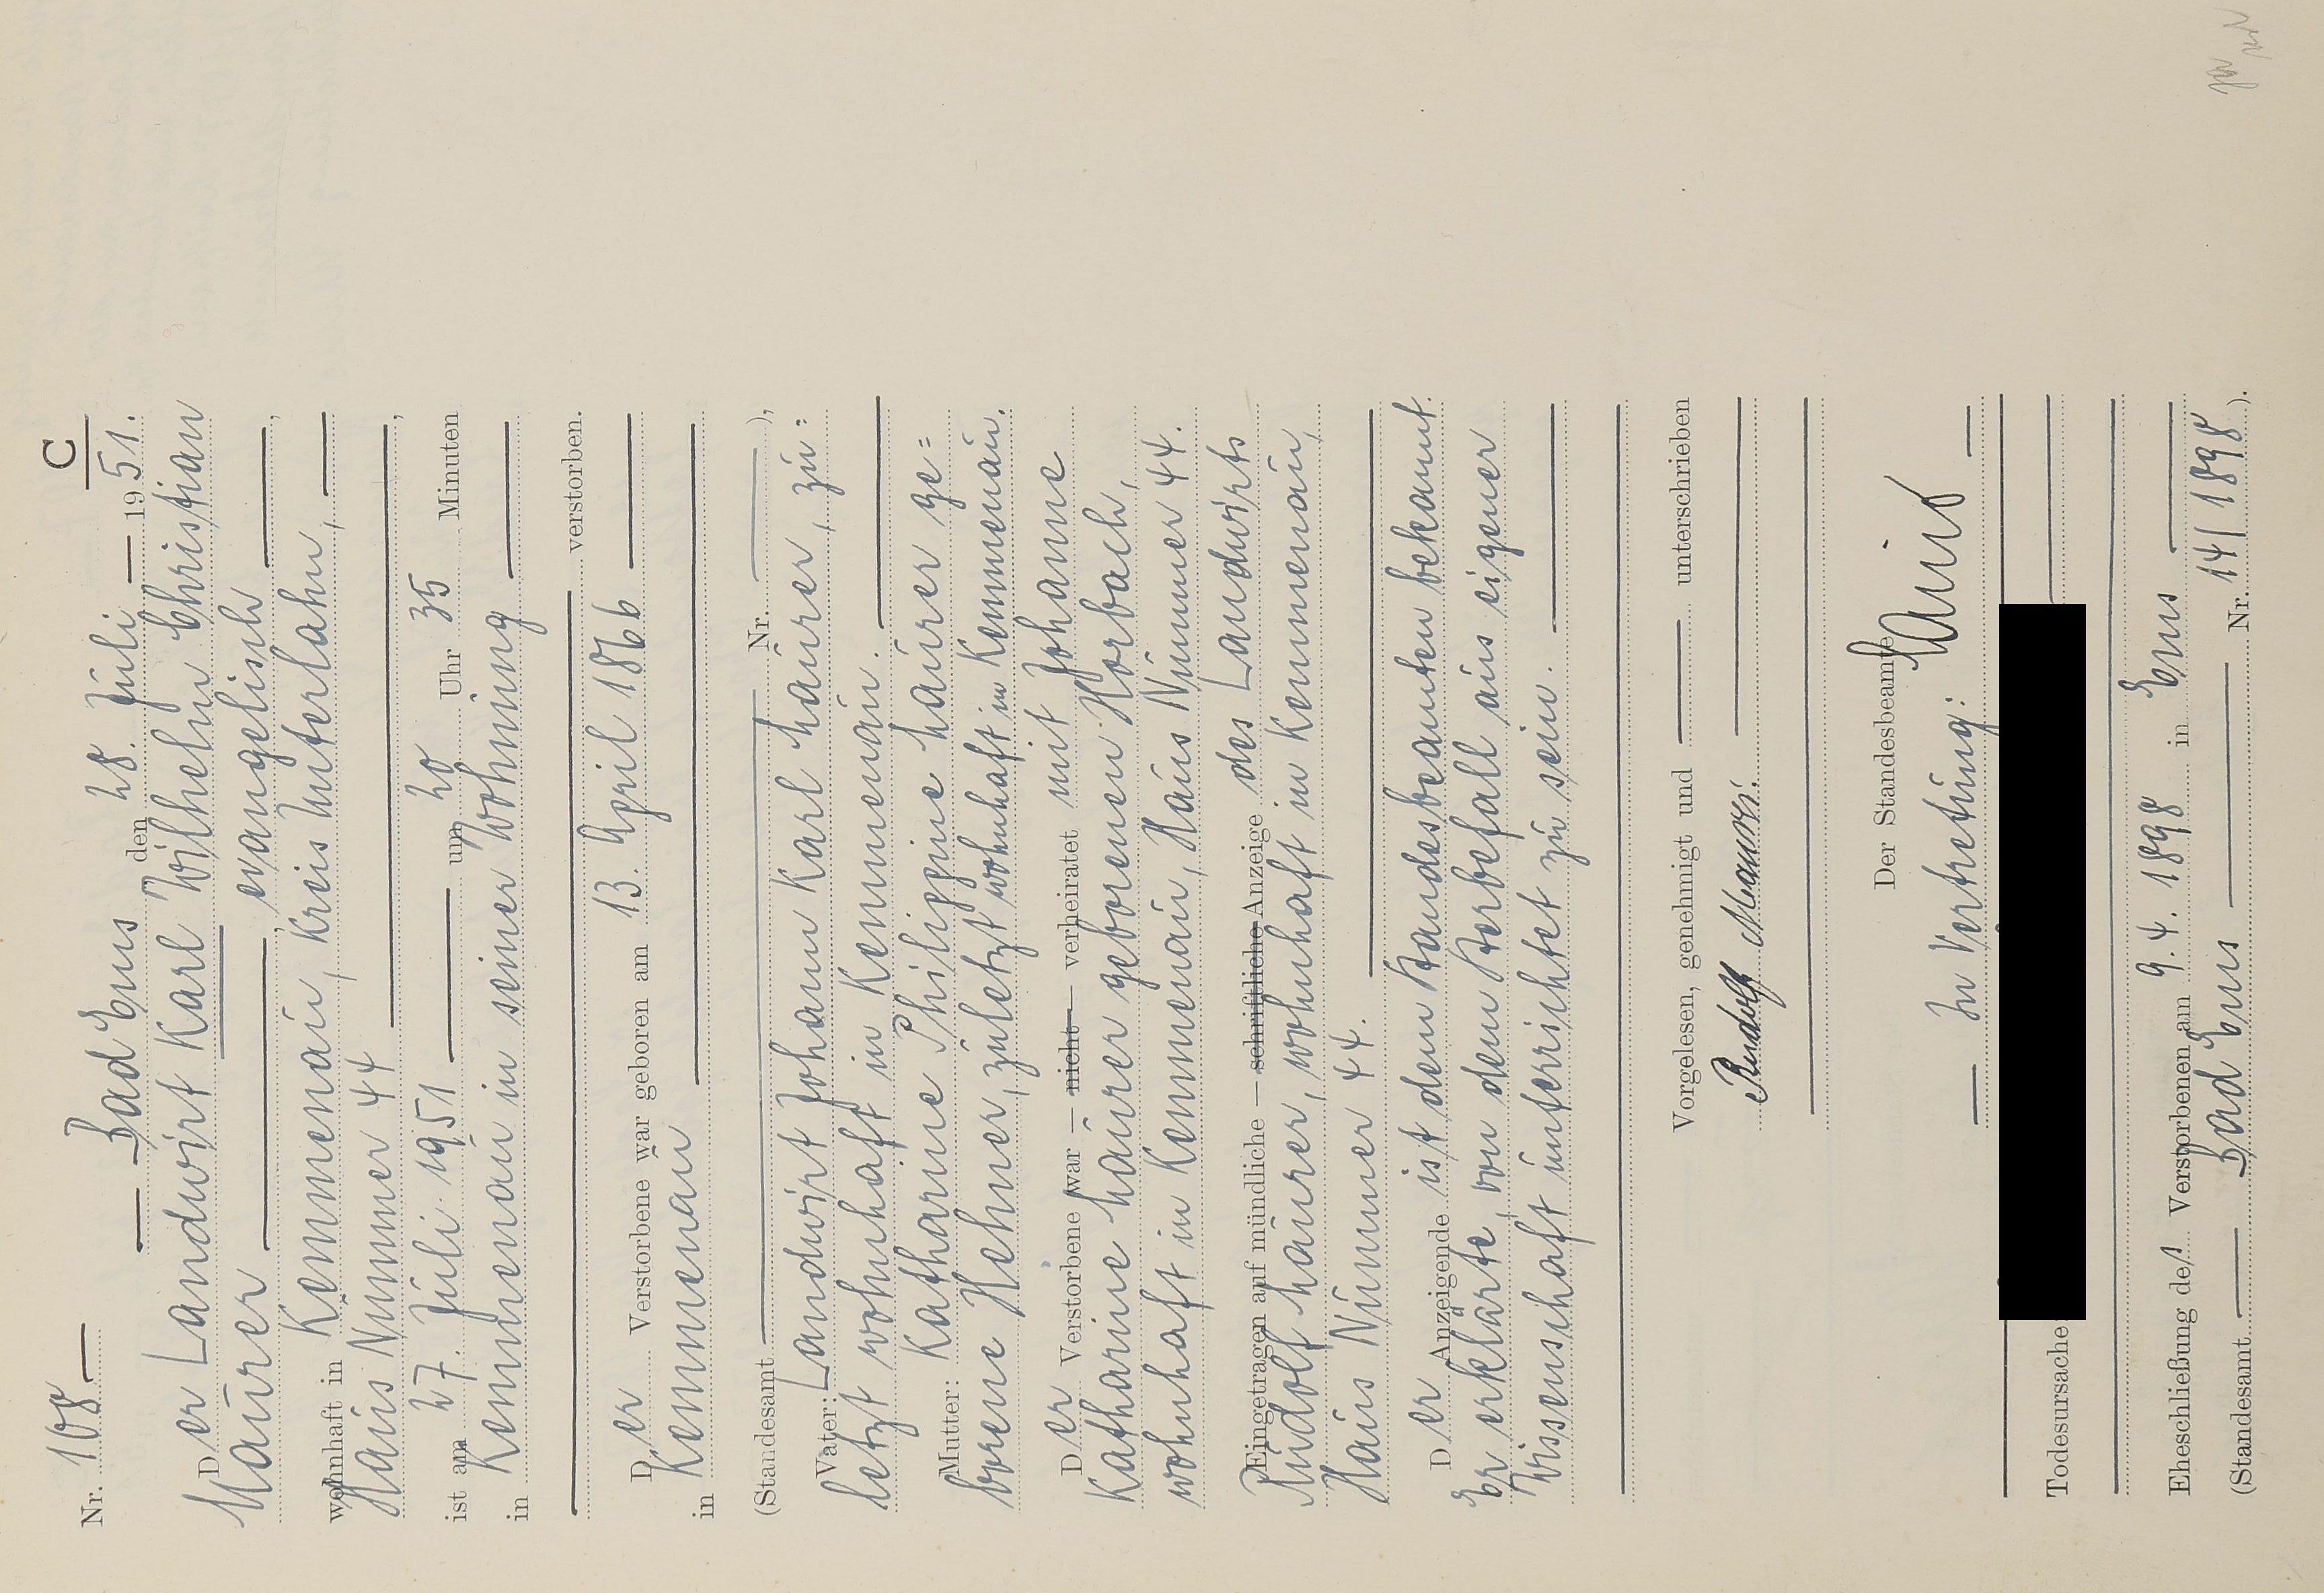 C
Nr. 108
Bad Ems den 28. Juli 1951.
Der Landwirt Karl Wilhelm Christian
Maurer, evangelisch,
wohnhaft in Kemmenau, Kreis Unterlahn,
Haus Nummer 44,
ist am 27. Juli 1951 um 20 Uhr 35 Minuten
in Kemmenau in seiner Wohnung
verstorben.
Der Verstorbene war geboren am 13. April 1866
in Kemmenau
(Standesamt Nr. ),
Vater: Landwirt Johann Karl Maurer, zu=
letzt wohnhaft in Kemmenau.
Mutter: Katharine Philippine Maurer ge=
borene Hehner, zuletzt wohnhaft in Kemmenau.
Der Verstorbene war — nicht — verheiratet mit Johanne
Katharine Maurer geborenen Horbach,
wohnhaft in Kemmenau, Haus Nummer 44.
Eingetragen auf mündliche — schriftliche Anzeige des Landwirts
Rudolf Maurer, wohnhaft in Kemmenau,
Haus Nummer 44.
Der Anzeigende ist dem Standesbeamten bekannt.
Er erklärte, von dem Sterbefall aus eigener
Wissenschaft unterrichtet zu sein.
Vorgelesen, genehmigt und unterschrieben
Rudolf Maurer.
Der Standesbeamte
In Vertretung:
Todesursache:
Eheschließung des Verstorbenen am 9. 4. 1898 in Ems
(Standesamt Bad Ems Nr. 14/1898).